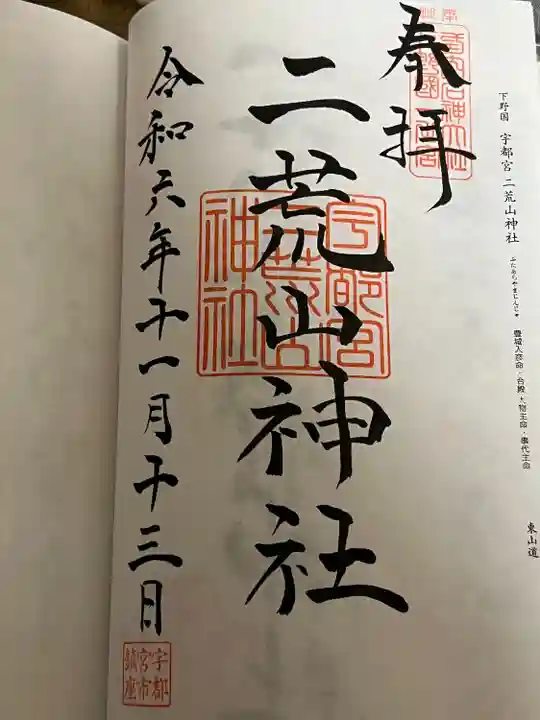 下野国 宇都宮 二荒山神社 ふたあらやまじんじゃ 豊城入彦命・合殿 大物主命・事代主命 東山道
奉拝
二荒山神社
宇都宮
二荒山
神社
令和六年十一月十三日
宇都
宮市
鎮座